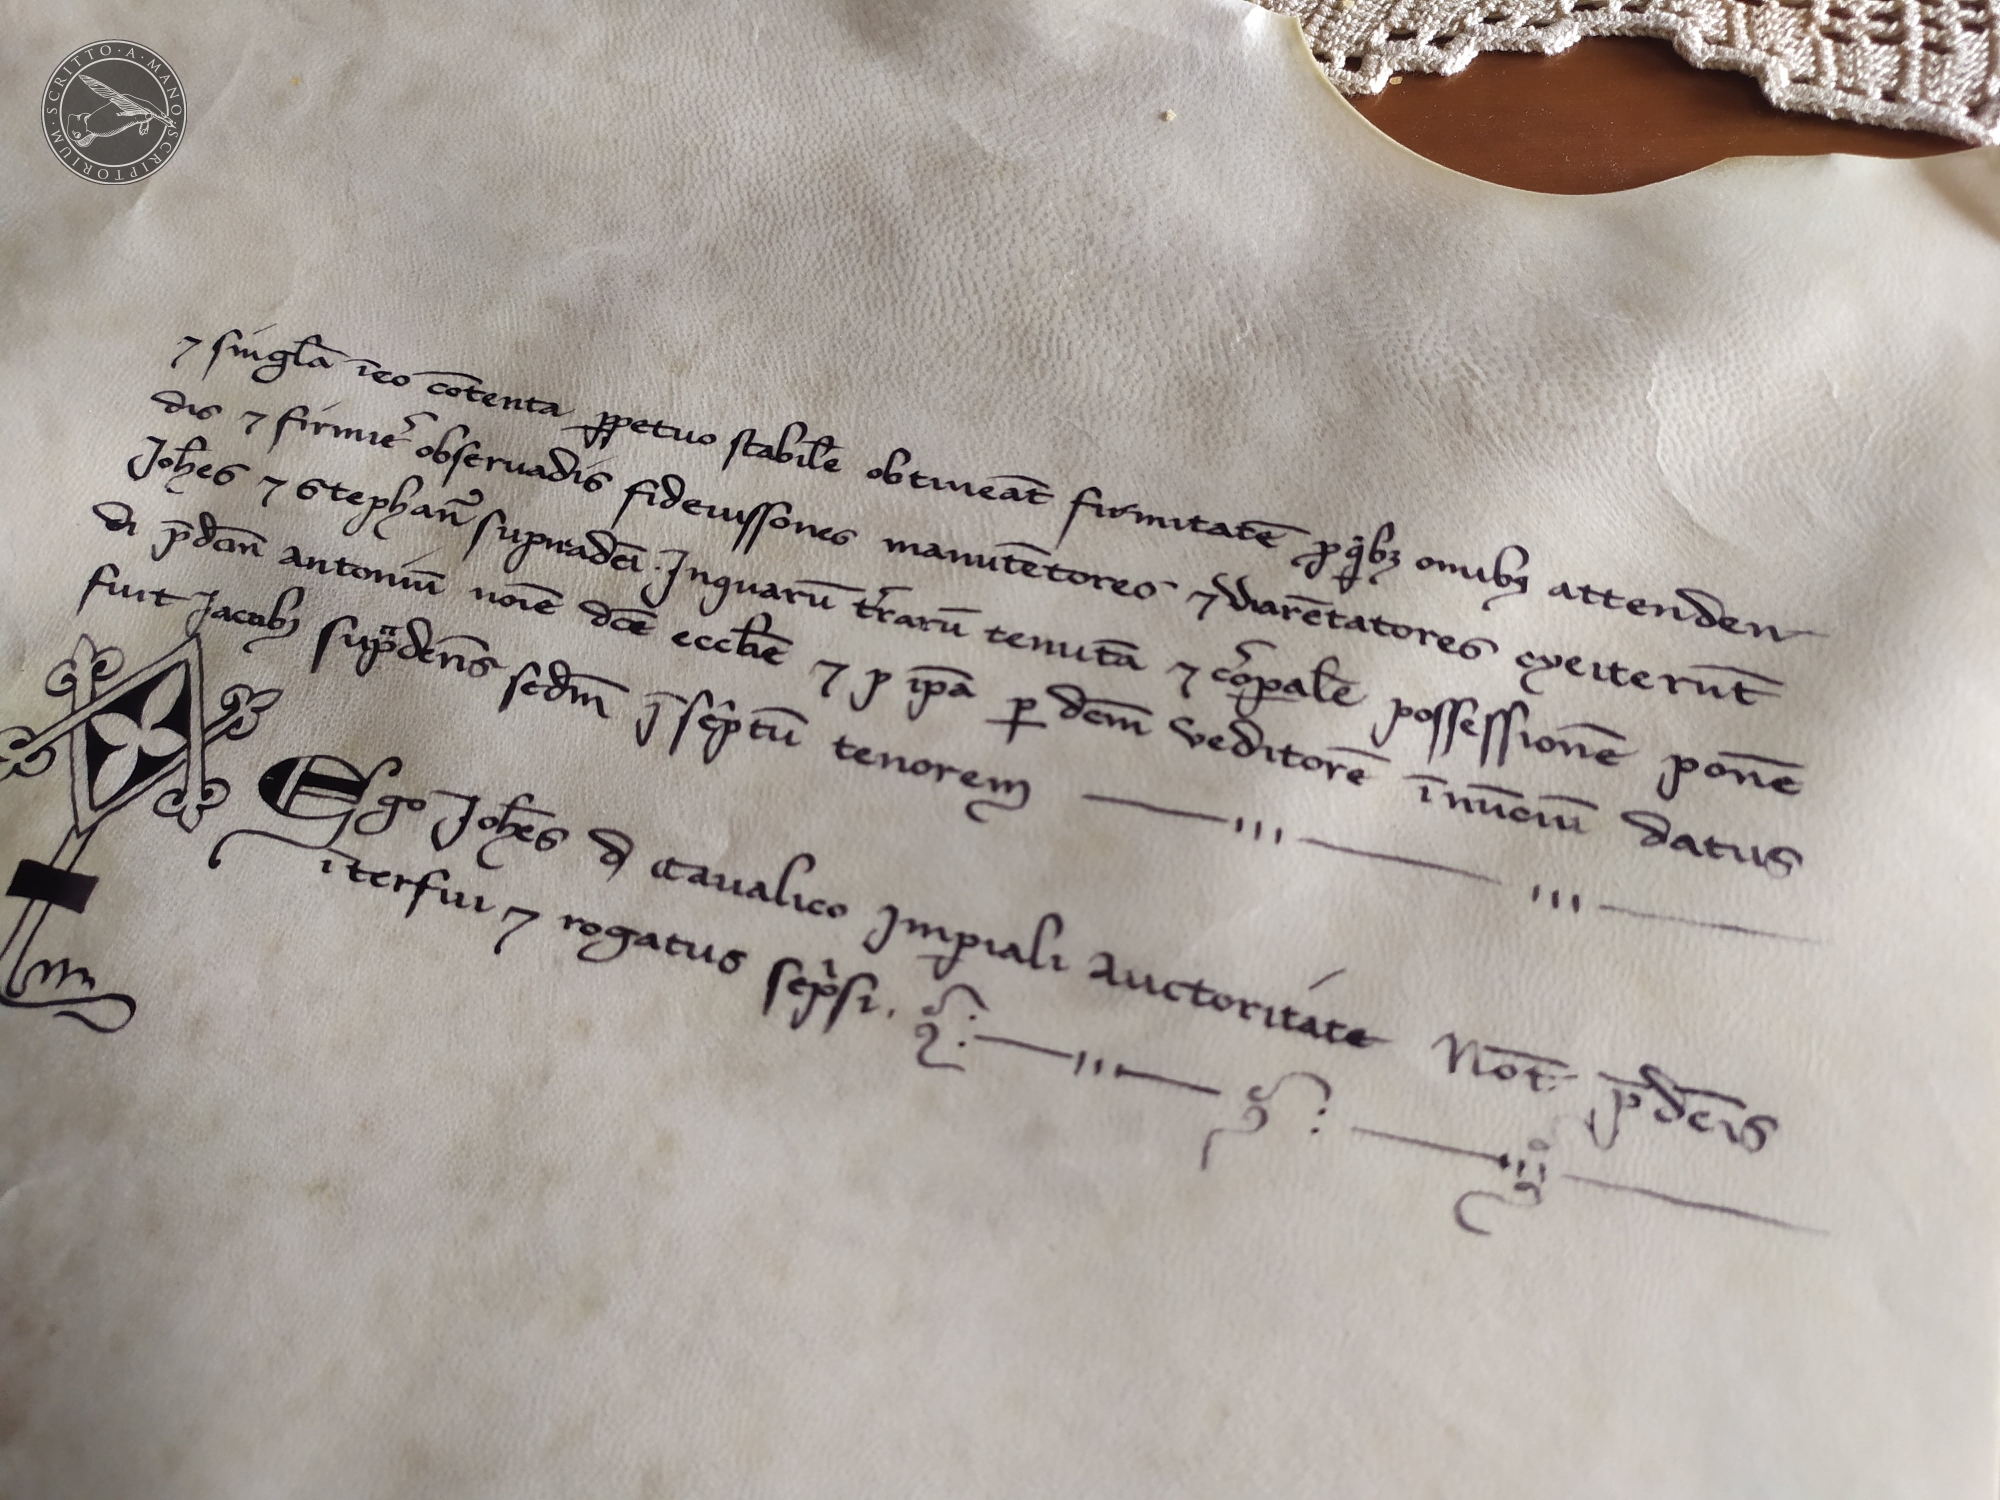 SCRITTO·A·MANO·SCRIPTORIUM·
⁊ singl̄a īeo cōtenta ꝑpetuo stabil̄e obtineāt firmitatē ꝓ q̇bꝫ omnibꝫ attenden
dis ⁊ firmit̄ obseruadis fideiussores manutētores ⁊ diarētatores exeiterūt
Joh̄es ⁊ Stephan̄ supradc̄i. Inquarū t̄rarū tenutā ⁊ cōꝑal̄e possessionē ponē
di p̄dc̄m̄ antoniū noīe dc̄e eccl̄ie ⁊ ꝑ ip̄ā ꝑ dc̄m̄ veditorē ī nūciū datus
fuit Jacobꝫ sup̄dc̄ūs sc̄dm̄ p̄sc̄ptū tenorem
Ego Joh̄es d̄ Caualico Imꝑiali Auctoritate Not̄. p̄dc̄is
īterfui ⁊ rogatus sc̄psi.